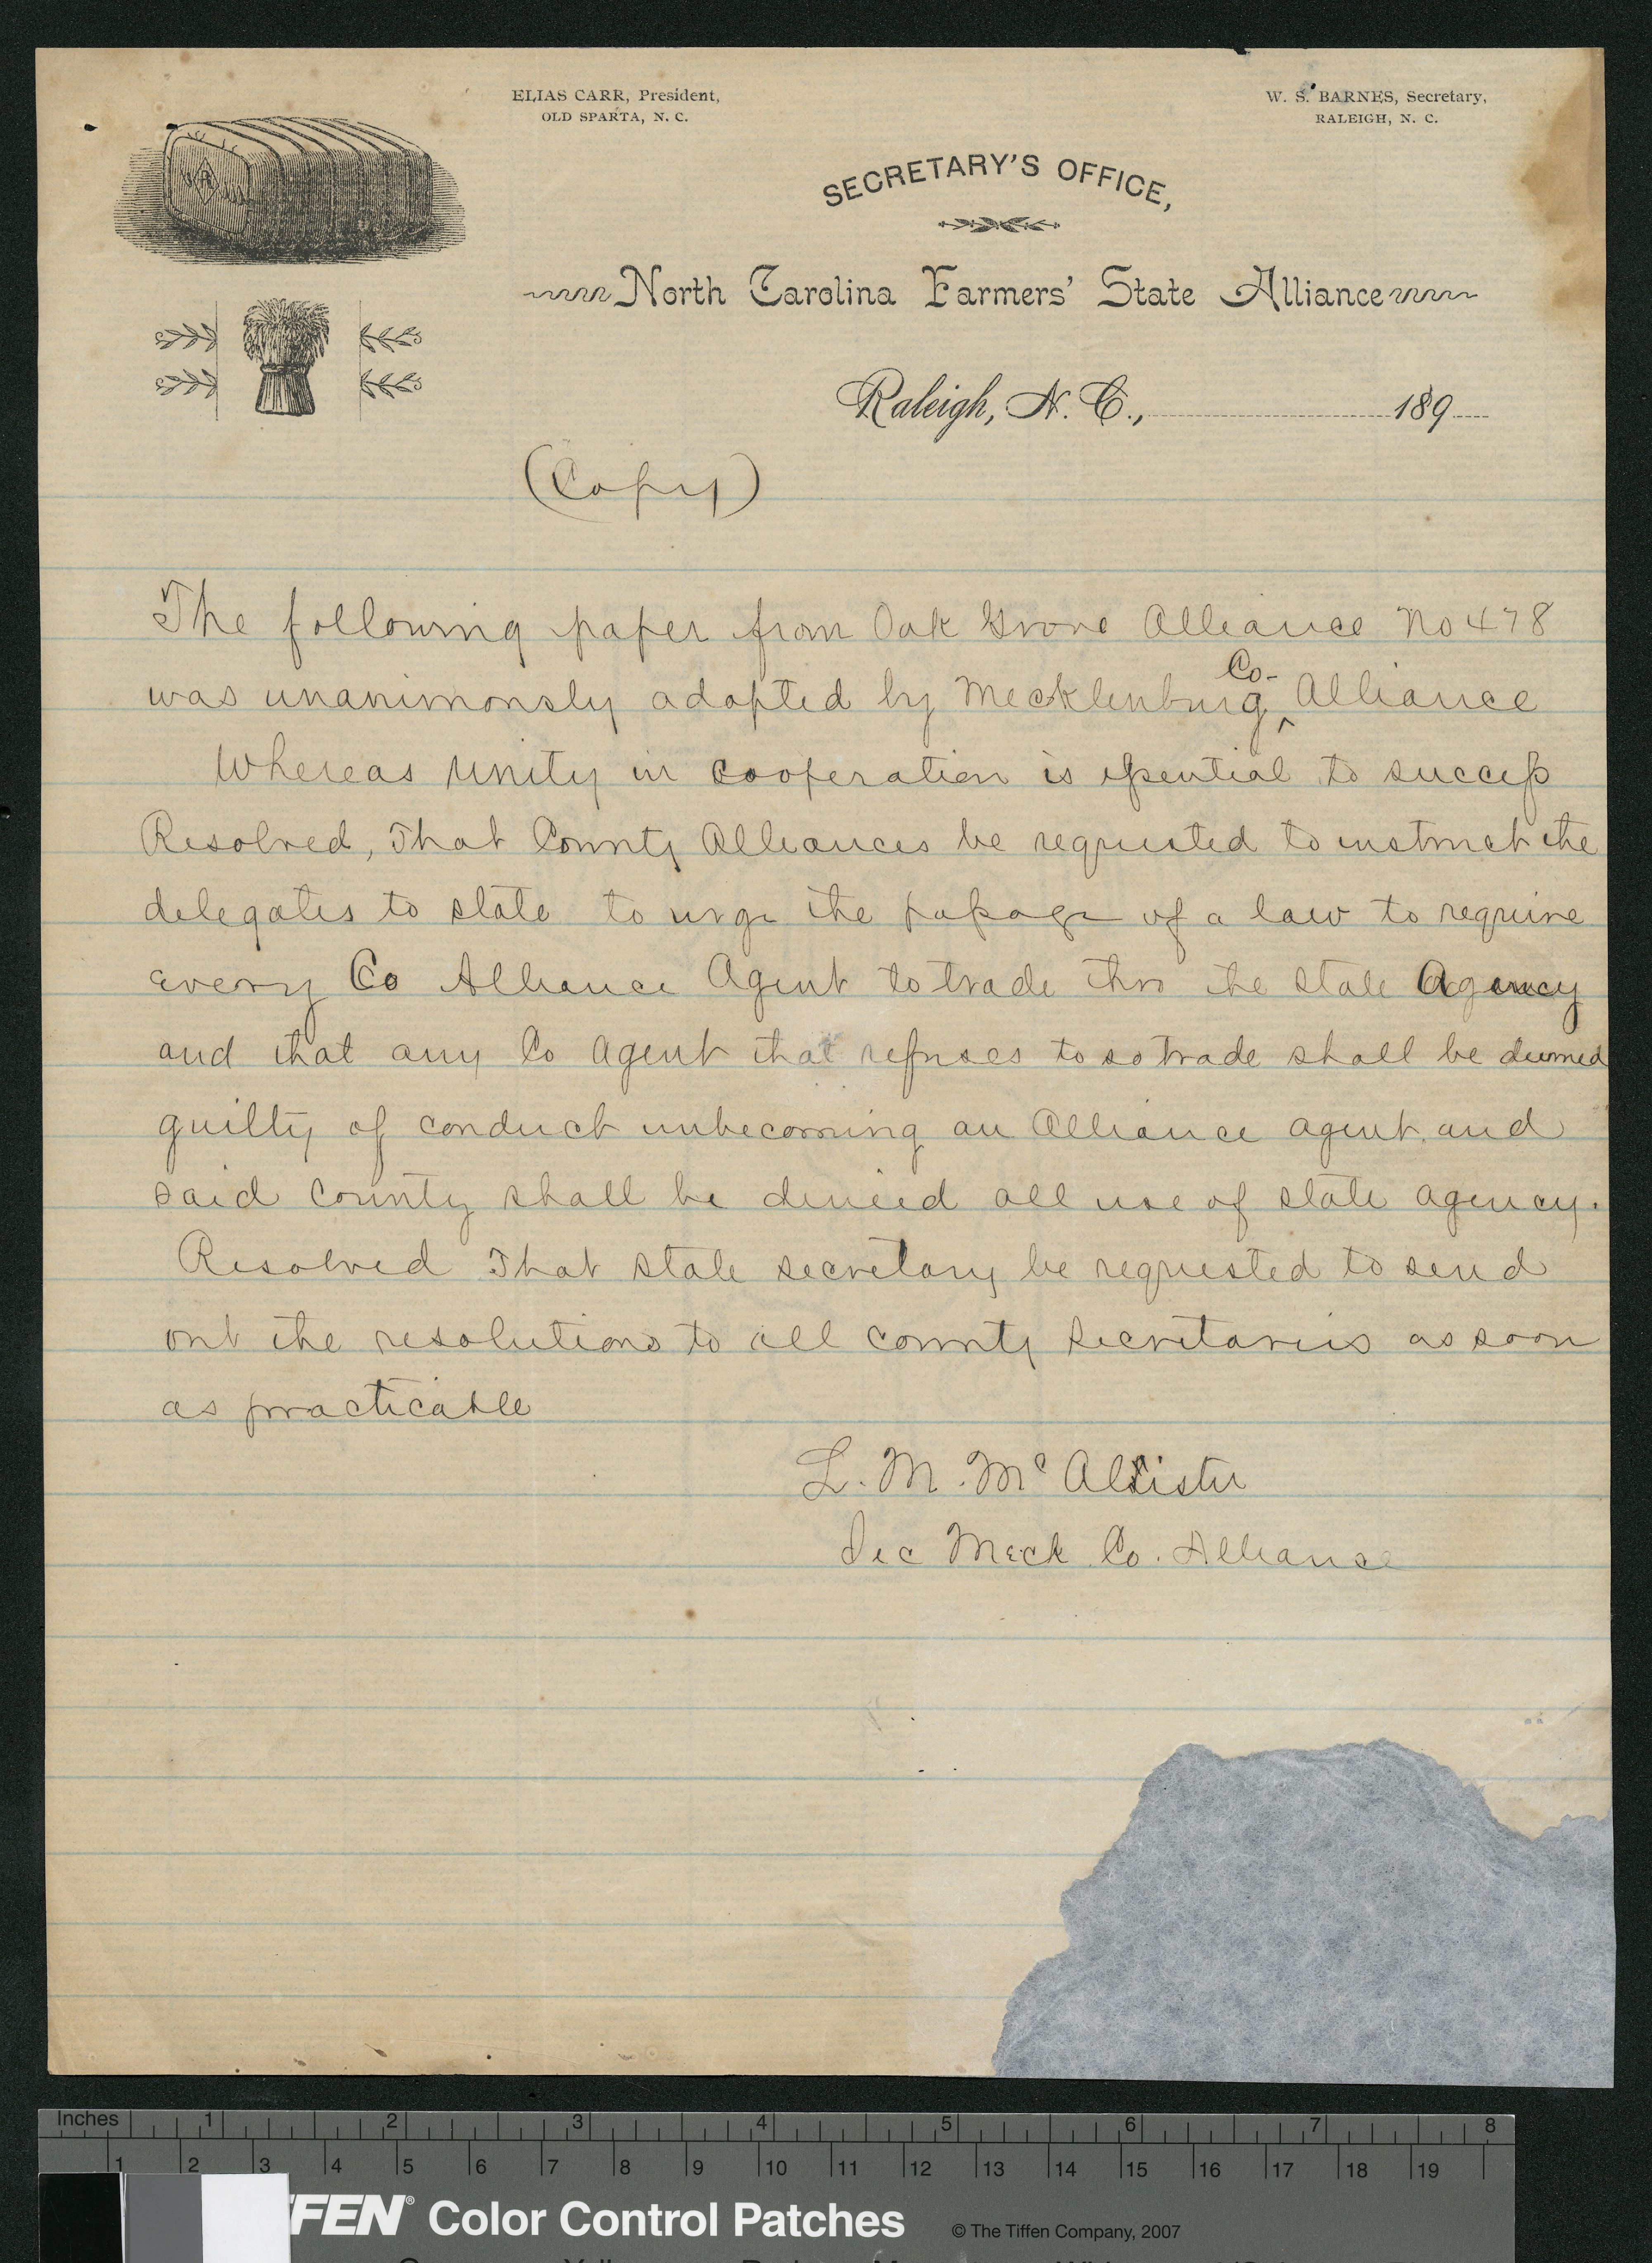 ELIAS CARR, President,
OLD SPARTA, N. C.
W. S. BARNES, Secretary,
RALEIGH, N. C.
SECRETARY'S OFFICE,
North Carolina Farmers' State Alliance
Raleigh, N. C., 189
(Copy)
The following paper from Oak Grove Alliance No 478
was unanimously adopted by Mecklenburg Co- Alliance
Whereas Unity in cooperation is essential to success
Resolved, That County Alliances be requested to instruct the
delegates to state to urge the passage of a law to require
every Co Alliance Agent to trade thro the state Agency
and that any Co Agent that refuses to so trade shall be deemed
guilty of conduct unbecoming an Alliance agent and
said County shall be denied all use of state agency.
Resolved That state secretary be requested to send
out the resolutions to all county secretaries as soon
as practicable
L. M. McAllister
Sec Meck Co. Alliance
Inches 1 2 3 4 5 6 7 8
1 2 3 4 5 6 7 8 9 10 11 12 13 14 15 16 17 18 19
FFEN® Color Control Patches © The Tiffen Company, 2007